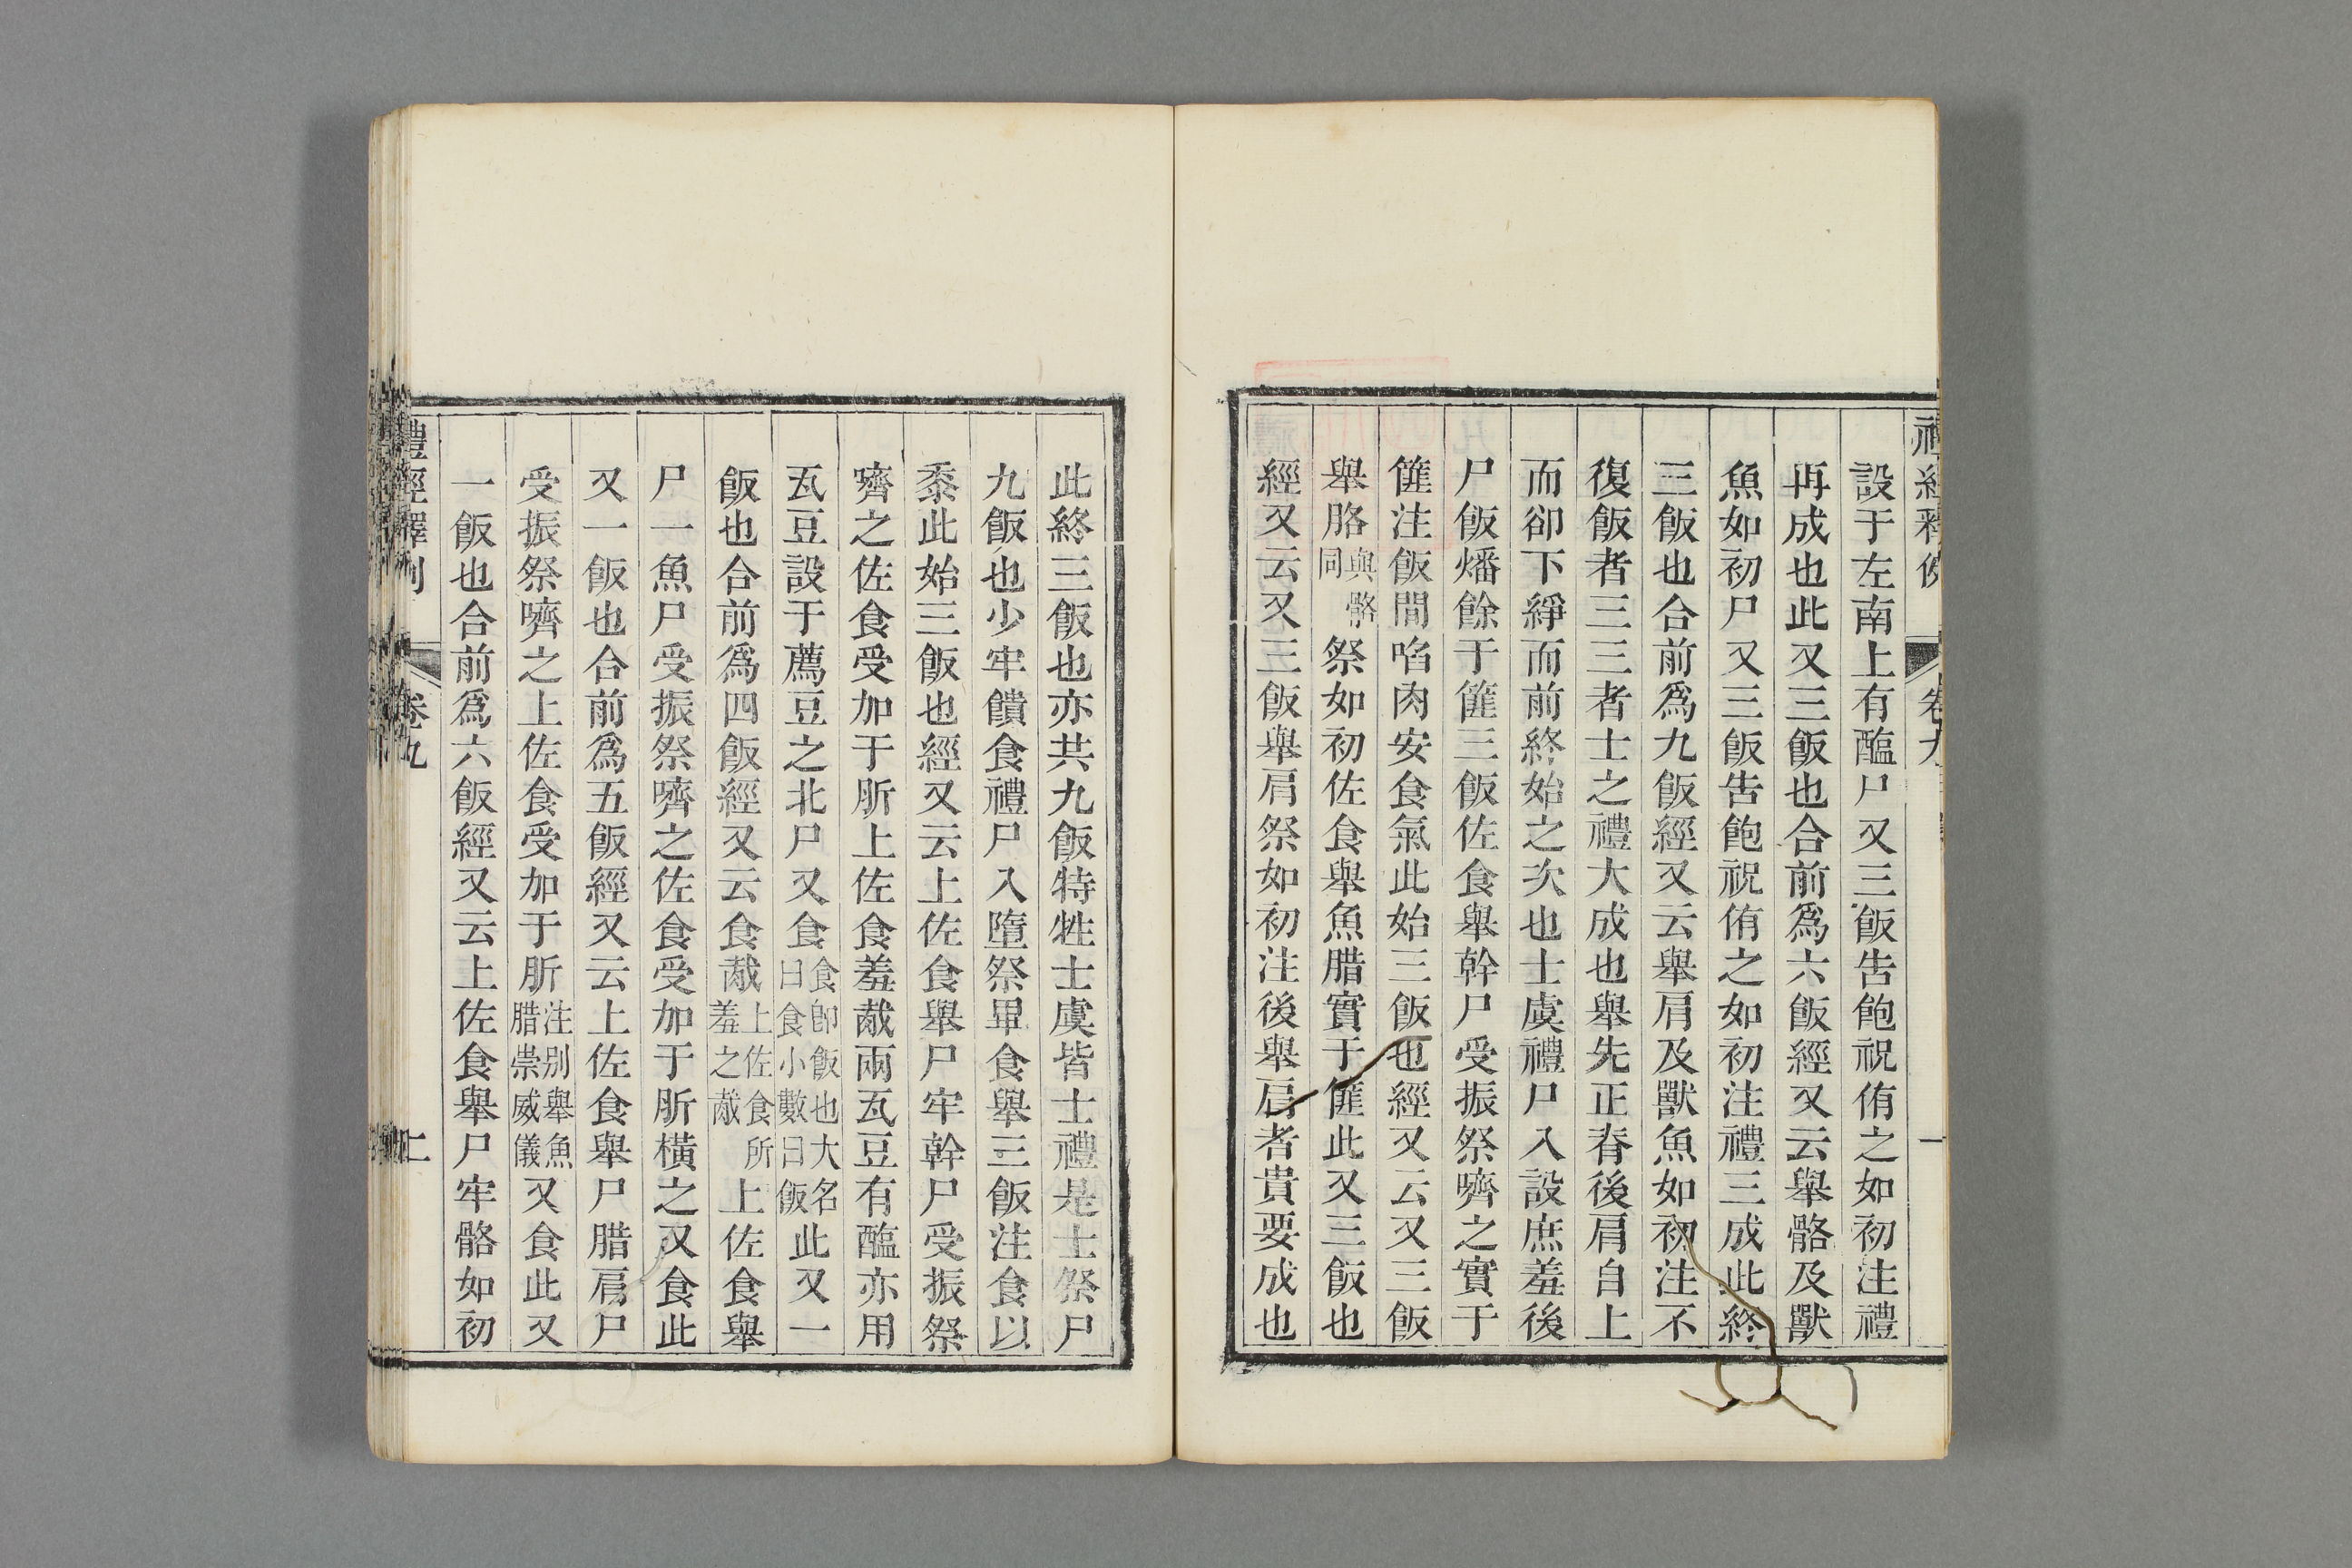 禮經釋例 卷九 一
設于左南上有醢尸又三飯告飽祝侑之如初注禮
再成也此又三飯也合前爲六飯經又云舉骼及獸
魚如初尸又三飯告飽祝侑之如初注禮三成此終
三飯也合前爲九飯經又云舉肩及獸魚如初注不
復飯者三三者士之禮大成也舉先正脊後肩自上
而卻下綪而前終始之次也士虞禮尸入設庶羞後
尸飯燔餘于篚三飯佐食舉幹尸受振祭嚌之實于
篚注飯間啗肉安食氣此始三飯也經又云又三飯
舉胳與骼同祭如初佐食舉魚腊實于篚此又三飯也
經又云又三飯舉肩祭如初注後舉肩者貴要成也
此終三飯也亦共九飯特牲士虞皆士禮是士祭尸
九飯也少牢饋食禮尸入墮祭畢食舉三飯注食以
黍此始三飯也經又云上佐食舉尸牢幹尸受振祭
嚌之佐食受加于肵上佐食羞胾兩瓦豆有醢亦用
瓦豆設于薦豆之北尸又食食卽飯也大名曰食小數曰飯此又一
飯也合前爲四飯經又云食胾上佐食所羞之胾上佐食舉
尸一魚尸受振祭嚌之佐食受加于肵橫之又食此
又一飯也合前爲五飯經又云上佐食舉尸腊肩尸
受振祭嚌之上佐食受加于肵注別舉魚腊崇威儀又食此又
一飯也合前爲六飯經又云上佐食舉尸牢骼如初
禮經釋例 卷九 二